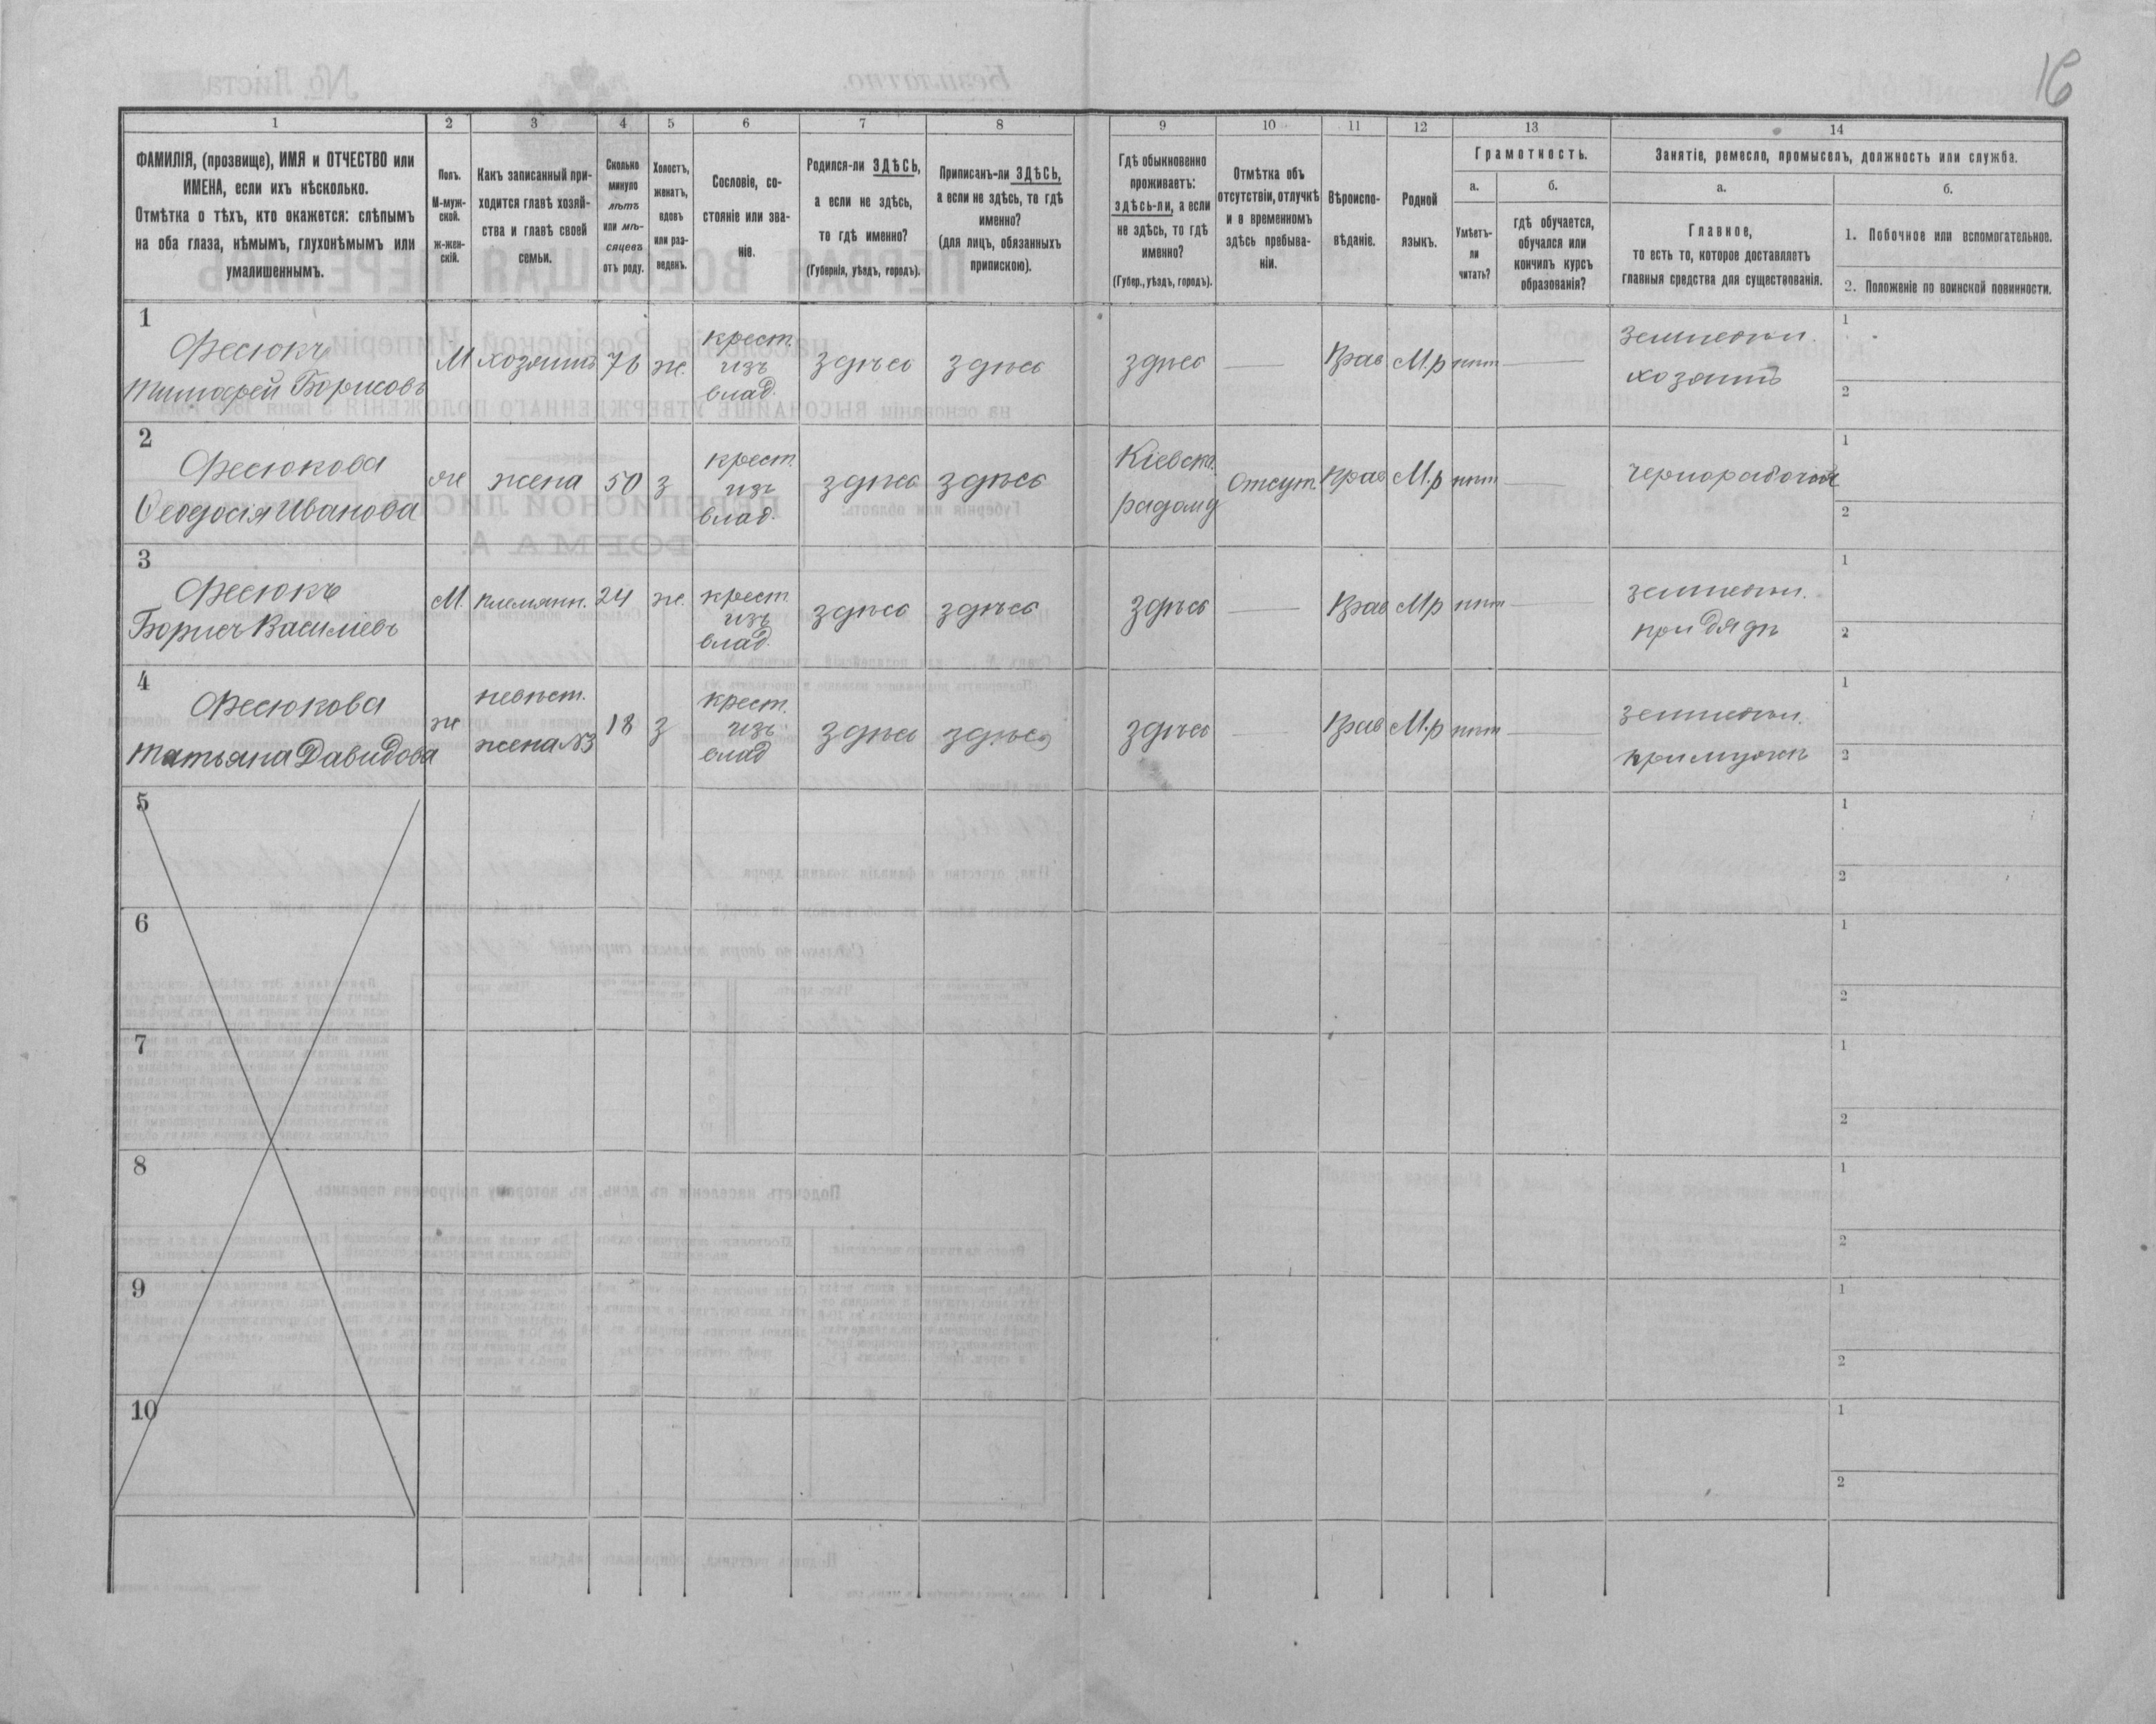 16
1 2 3 4 5 6 7 8 9 10 11 12 13 14
ФАМИЛІЯ, (прозвище), ИМЯ и ОТЧЕСТВО или
ИМЕНА, если ихъ нѣсколько.
Отмѣтка о тѣхъ, кто окажется: слѣпымъ
на оба глаза, нѣмымъ, глухонѣмымъ или
умалишеннымъ.
Полъ.
М-муж-
ской.
Ж-жен-
скій.
Какъ записанный при-
ходится главѣ хозяй-
ства и главѣ своей
семьи.
Сколько
минуло
лѣтъ
или мѣ-
сяцевъ
отъ роду.
Холостъ,
женатъ,
вдовъ
или раз-
веденъ.
Сословіе, со-
стояніе или зва-
ніе.
Родился-ли ЗДѢСЬ,
а если не здѣсь,
то гдѣ именно?
(Губернія, уѣздъ, городъ).
Приписанъ-ли ЗДѢСЬ,
а если не здѣсь, то гдѣ
именно?
(для лицъ, обязанныхъ
припискою).
Гдѣ обыкновенно
проживаетъ:
здѣсь-ли, а если
не здѣсь, то гдѣ
именно?
(Губер., уѣздъ, городъ).
Отмѣтка объ
отсутствіи, отлучкѣ
и о временномъ
здѣсь пребыва-
ніи.
Вѣроиспо-
вѣданіе.
Родной
языкъ.
Грамотность.
а.
Умѣетъ-
ли
читать?
б.
гдѣ обучается,
обучался или
кончилъ курсъ
образованія?
Занятіе, ремесло, промыселъ, должность или служба.
а.
Главное,
то есть то, которое доставляетъ
главныя средства для существованія.
б.
1. Побочное или вспомогательное.
2. Положеніе по воинской повинности.
1
Фесюкъ
Тимофей Борисовъ
М
хозяинъ
76
ж.
крест.
изъ
влад.
здѣсь
здѣсь
здѣсь
—
Прав
М.р
нѣт
—
землепаш.
хозяинъ
1
2
2
Фесюкова
Ѳеодосія Иванова
же
жена
50
з
крест.
изъ
влад.
здѣсь
здѣсь
Кіевска.
радомд
Отсут.
Прав
М.р
нѣт
—
1
2
3
Фесюкъ
Борисъ Василіевъ
М.
племянн.
24
ж.
крест
изъ
влад.
здѣсь
здѣсь
здѣсь
—
Прав
М.р
нѣт
—
землепаш.
при дядѣ
1
2
4
Фесюкова
Татьяна Давидова
же
невѣст.
жена №3
18
з
крест.
изъ
влад
здѣсь
здѣсь
здѣсь
—
Прав
М.р
нѣт
—
землепаш.
при мужѣ
1
2
5
1
2
6
1
2
7
1
2
8
1
2
9
1
2
10
1
2